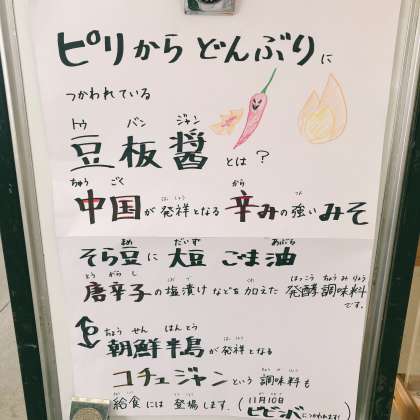 ピリからどんぶりに
つかわれている
トウ バン ジャン
豆板醤とは?
ちゅう ごく はっしょう から つよ
中国が発祥となる辛みの強いみそ
まめ だいず あぶら
そら豆に大豆 ごま油
とう がら し しお づ くわ はっこう ちょう み りょう
唐辛子の塩漬けなどを加えた発酵調味料
です。
ちょう せん はんとう はっしょう
朝鮮半島が発祥となる
ちょうみりょう
コチュジャンという調味料も
給食には登場します。(11月10日
ビビンバにつかわれます!)